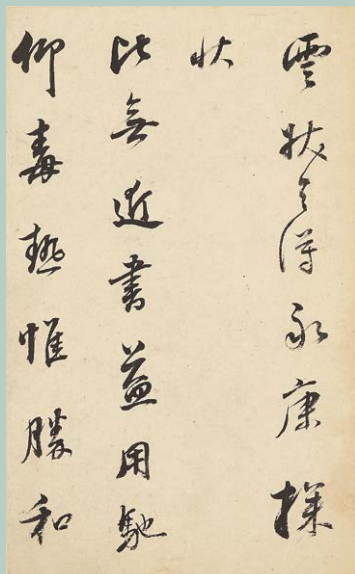 雲得永康
状
比無近書益用馳
仰毒熱惟勝和